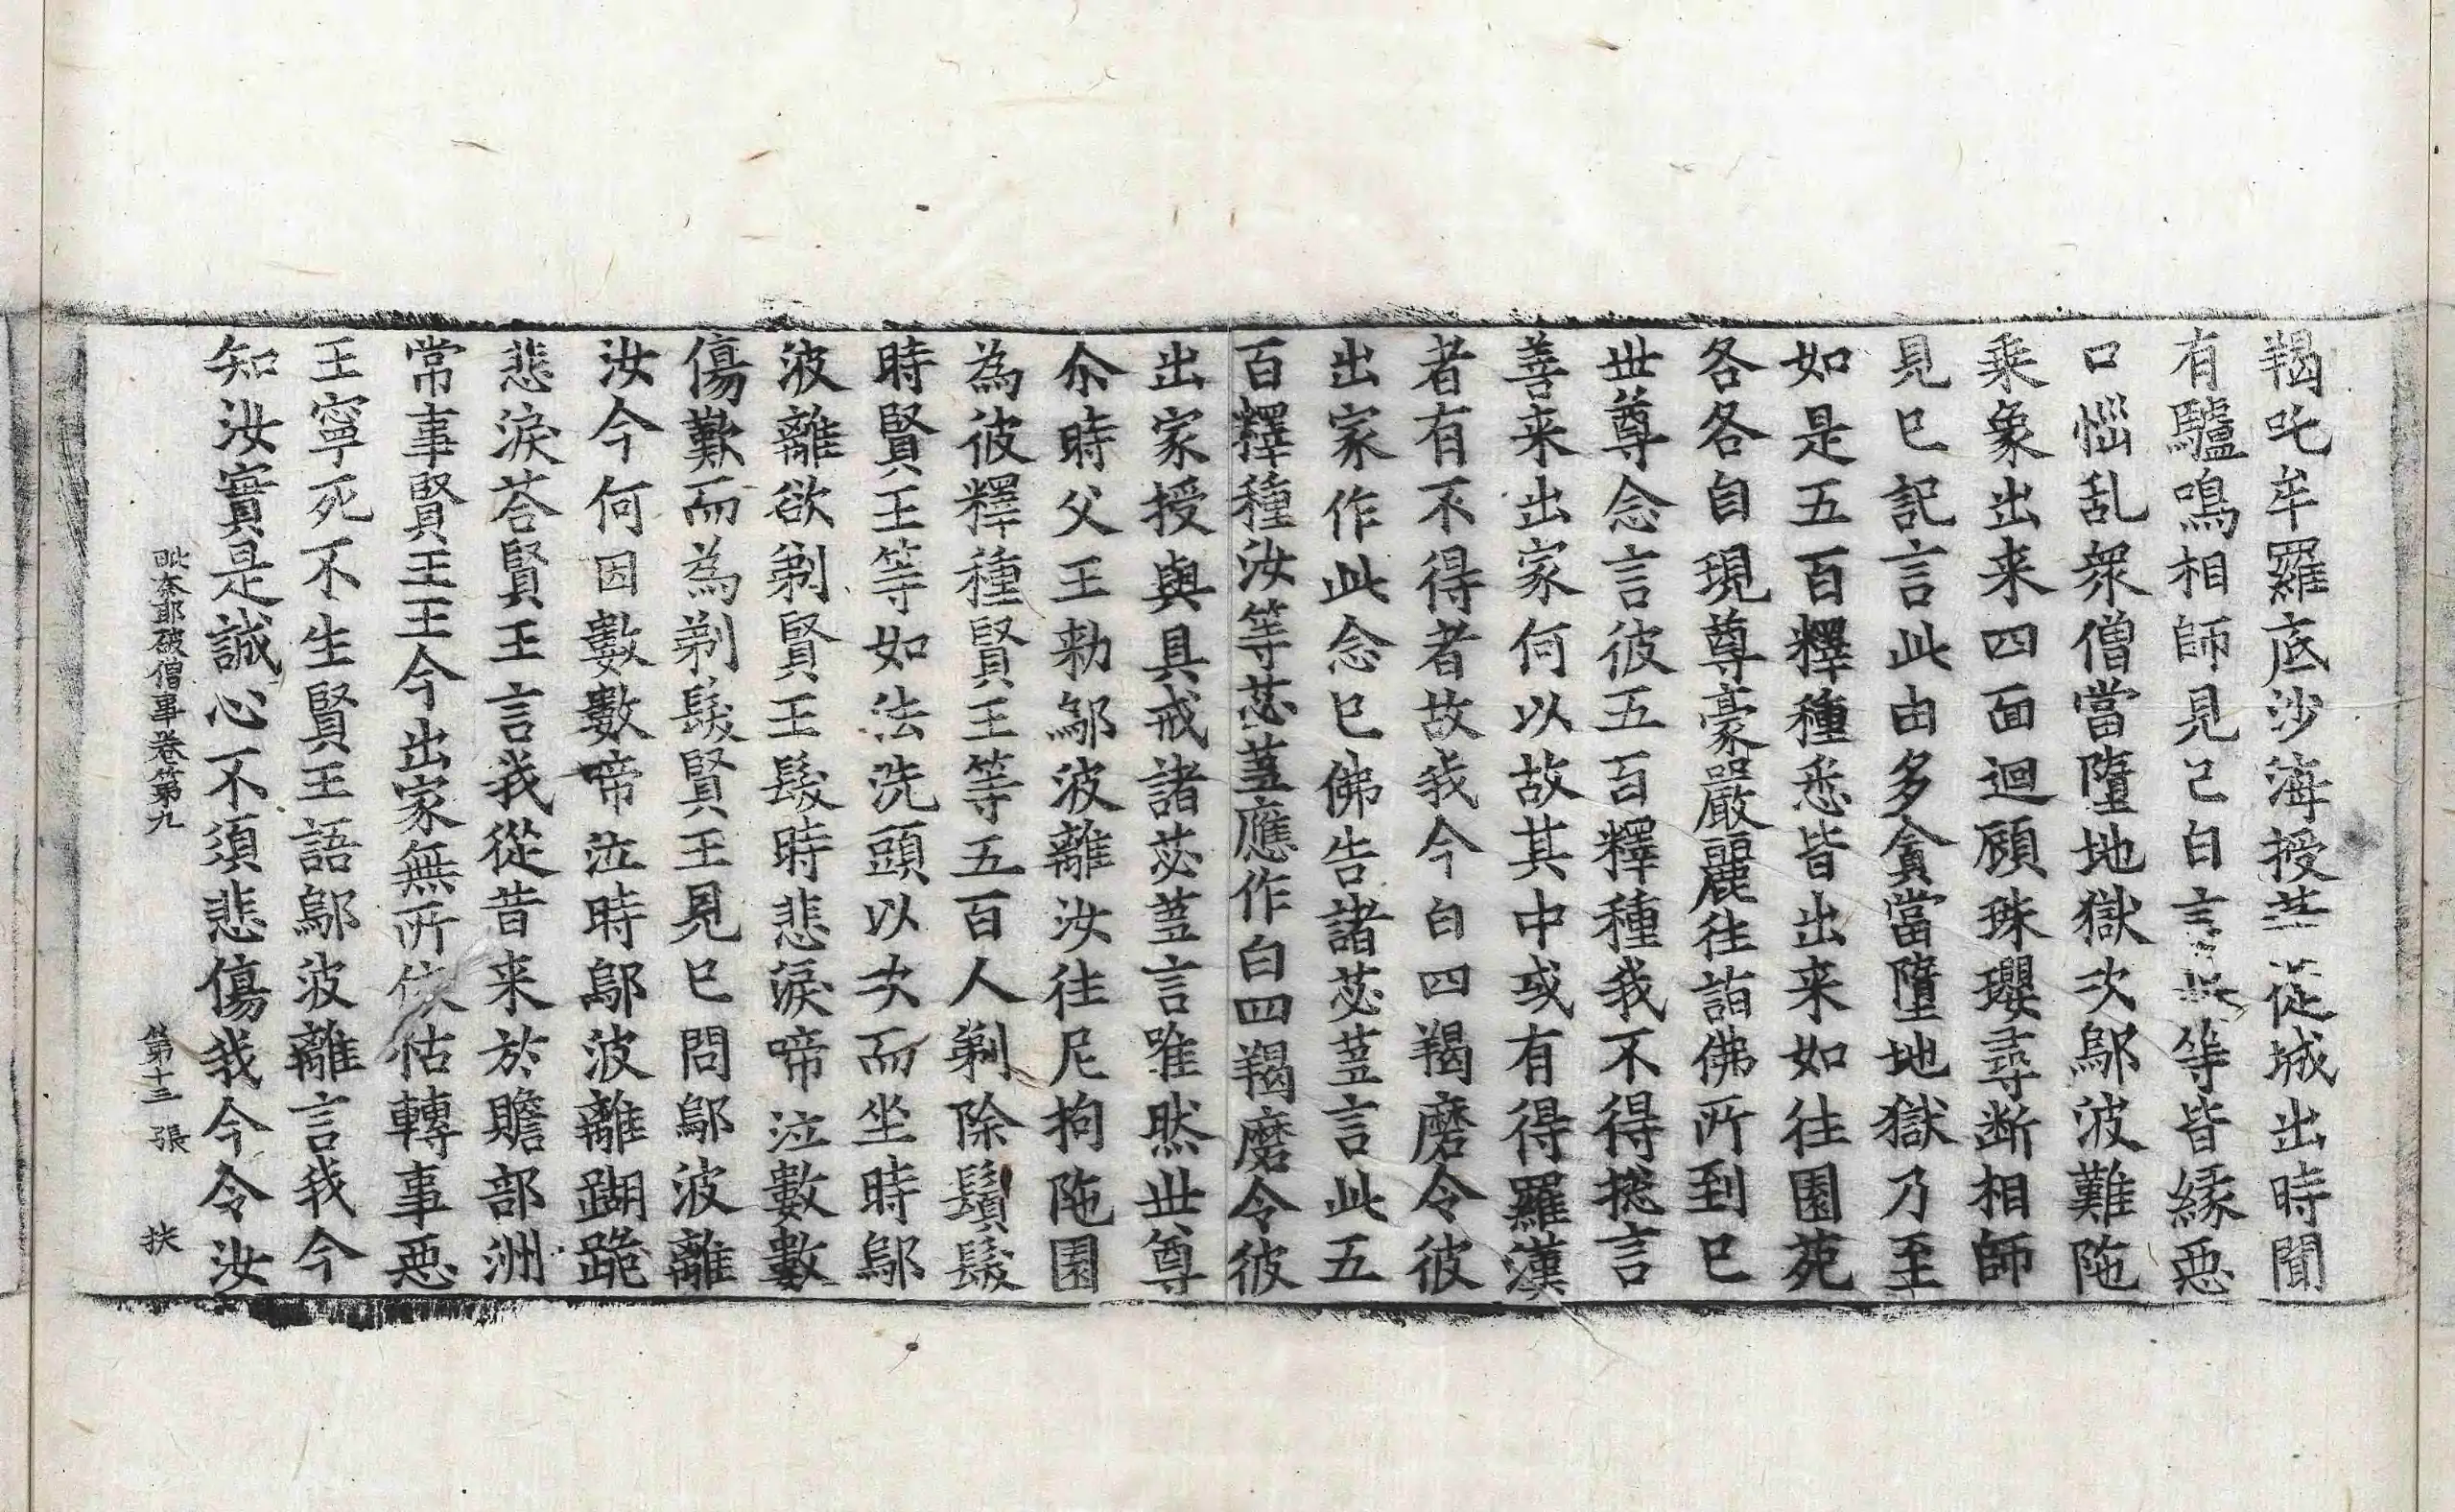 羯吒牟羅底沙海授等從城出時聞
有驢鳴相師見己白言等皆緣惡
口惱乱衆僧當墮地獄次鄔波難陁
乘象出来四面迴顧珠瓔尋断相師
見已記言此由多貪當墮地獄乃至
如是五百釋種悉皆出来如往園苑
各各自現尊豪嚴麗往詣佛所到已
世尊念言彼五百釋種我不得捴言
善来出家何以故其中或有得羅漢
者有不得者故我今白四羯磨令彼
出家作此念已佛告諸苾蒭言此五
百釋種汝等苾蒭應作白四羯磨令彼
出家授與具戒諸苾蒭言唯然世尊
尒時父王勑鄔波離汝往尼拘陁園
為彼釋種賢王等五百人剃除鬚髮
時賢王等如法洗頭以次而坐時鄔
波離欲剃賢王髮時悲淚啼泣數數
傷歎而為剃髮賢王見已問鄔波離
汝今何因數數啼泣時鄔波離䠒跪
悲淚荅賢王言我從昔来於贍部洲
常事賢王王今出家無所依怙轉事惡
王寧死不生賢王語鄔波離言我今
知汝實是誠心不須悲傷我今令汝
毗奈耶破僧事卷第九 第十三張 扶